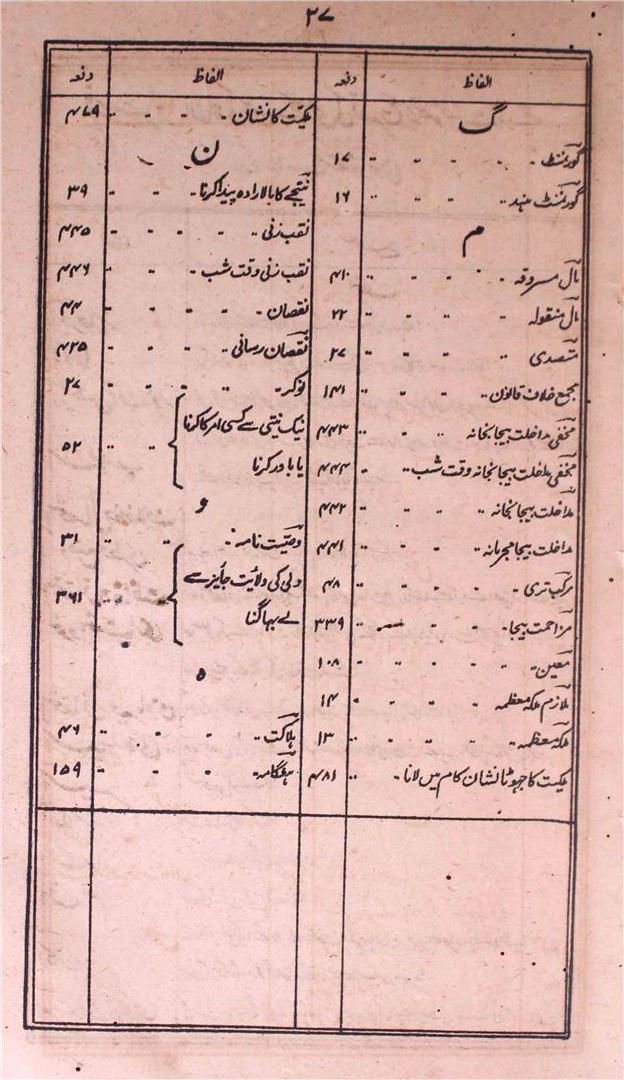 ۲۷
الفاظ دفعہ
گ
گورنمنٹ ۱۷
گورنمنٹ ہند ۱۶
م
مال مسروقہ ۴۱۰
مال منقولہ ۲۲
متصدی ۲۷
مجمع خلاف قانون ۱۴۱
مخفی مداخلت بیجا بخانہ ۴۴۳
مخفی مداخلت بیجا بخانہ وقت شب ۴۴۴
مداخلت بیجا بخانہ ۴۴۲
مداخلت بیجا مجرمانہ ۴۴۱
مرکب تری ۴۸
مزاحمت بیجا ۳۳۹
معین ۱۰۸
ملازم ملکہ معظمہ ۱۴
ملکہ معظمہ ۱۳
ملکیت کا جھوٹا نشان کام میں لانا ۴۸۱
الفاظ دفعہ
ملکیت کا نشان ۴۷۹
ن
نتیجے کا بالارادہ پیدا کرنا ۳۹
نقب زنی ۴۴۵
نقب زنی وقت شب ۴۴۶
نقصان ۴۴
نقصان رسانی ۴۲۵
نوکر ۲۷
نیک نیتی سے کسی امر کا کرنا
یا باور کرنا ۵۲
و
وصیت نامہ ۳۱
ولی کی ولایت جائز سے
لے بہاگنا ۳۶۱
ہ
ہلاکت ۴۶
ہنگامہ ۱۵۹